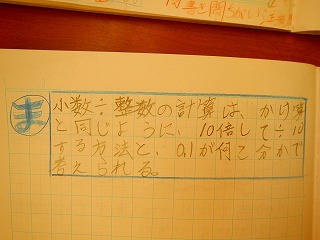 ま
小数÷整数の計算は、かけ算
と同じように、10倍して÷10
する方法と、0.1が何こ分かで
考えられる。